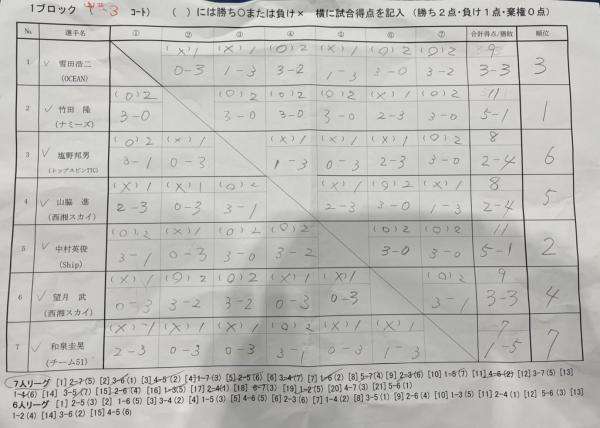 1ブロック 中-3 コート) ( )には勝ち○または負け× 横に試合得点を記入 (勝ち2点・負け1点・棄権0点)
No. 選手名 ① ② ③ ④ ⑤ ⑥ ⑦ 合計得点/勝敗 順位
(×)1 (×)1 (○)2 (×)1 (○)2 (○)2 9
1 ✓ 雪田浩二 3
(OCEAN) 0-3 1-3 3-2 1-3 3-0 3-2 3-3
(○)2 (○)2 (○)2 (○)2 (×)1 (○)2 11
2 ✓ 竹田 隆 1
(ナミーズ) 3-0 3-0 3-0 3-0 2-3 3-0 5-1
(○)2 (×)1 (×)1 (×)1 (×)1 (○)2 8
3 ✓ 塩野邦男 6
(トップスピンTTC) 3-1 0-3 1-3 0-3 2-3 3-0 2-4
(×)1 (×)1 (○)2 (×)1 (○)2 (×)1 8
4 ✓ 山脇 進 5
(西湘スカイ) 2-3 0-3 3-1 2-3 3-0 1-3 2-4
(○)2 (×)1 (○)2 (○)2 (○)2 (○)2 11
5 ✓ 中村英俊 2
(Ship) 3-1 0-3 3-0 3-2 3-0 3-0 5-1
(×)1 (○)2 (○)2 (×)1 (×)1 (○)2 9
6 ✓ 望月 武 4
(西湘スカイ) 0-3 3-2 3-2 0-3 0-3 3-1 3-3
(×)1 (×)1 (×)1 (○)2 (×)1 (×)1 7
7 ✓ 和泉圭晃 7
(チーム51) 2-3 0-3 0-3 3-1 0-3 1-3 1-5
7人リーグ [1] 2-7(5) [2] 3-6(1) [3] 4-5(2) [4] 1-7(3) [5] 2-5(6) [6] 3-4(7) [7] 1-6(2) [8] 5-7(4) [9] 2-3(6) [10] 1-5(7) [11] 4-6(2) [12] 3-7(5) [13]
1-4(6) [14] 3-5(7) [15] 2-6(4) [16] 1-3(5) [17] 2-4(1) [18] 6-7(3) [19] 1-2(5) [20] 4-7(3) [21] 5-6(1)
6人リーグ [1] 2-5(3) [2] 1-6(5) [3] 3-4(2) [4] 1-5(3) [5] 4-6(5) [6] 2-3(6) [7] 1-4(2) [8] 3-5(1) [9] 2-6(4) [10] 1-3(5) [11] 2-4(1) [12] 5-6(3) [13]
1-2(4) [14] 3-6(2) [15] 4-5(6)